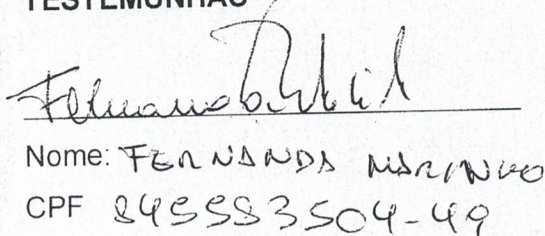 TESTEMUNHAS
Nome: FERNANDA MARINHO
CPF 845583504-49